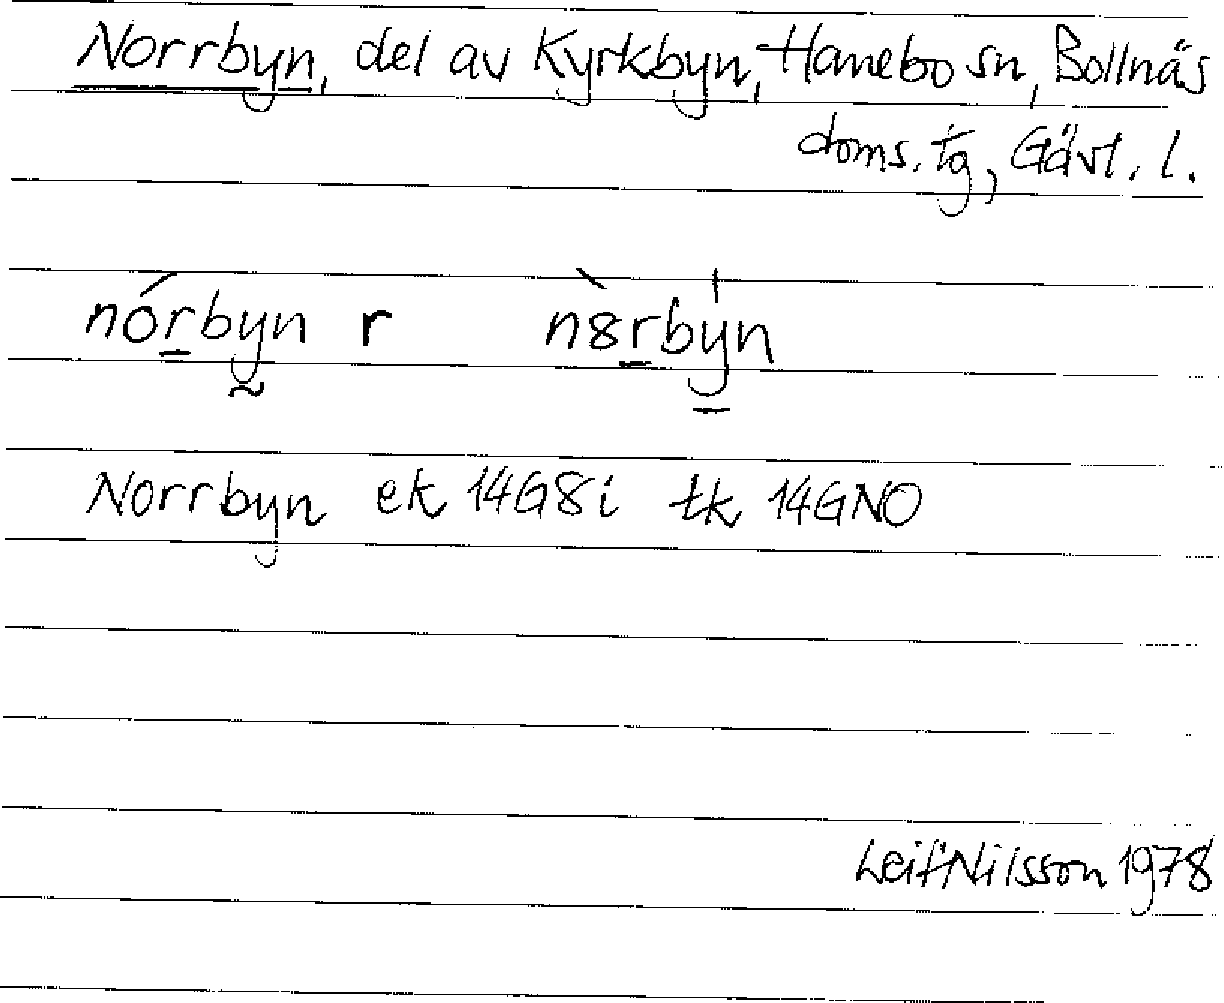 Norrbyn, del av Kyrkbyn, Hanebo sn, Bollnäs
doms. tg, Gävl. l.
nórbyn r n8rbyn
Norrbyn ek 14G8i tk 14GNO
Leif Nilsson 1978